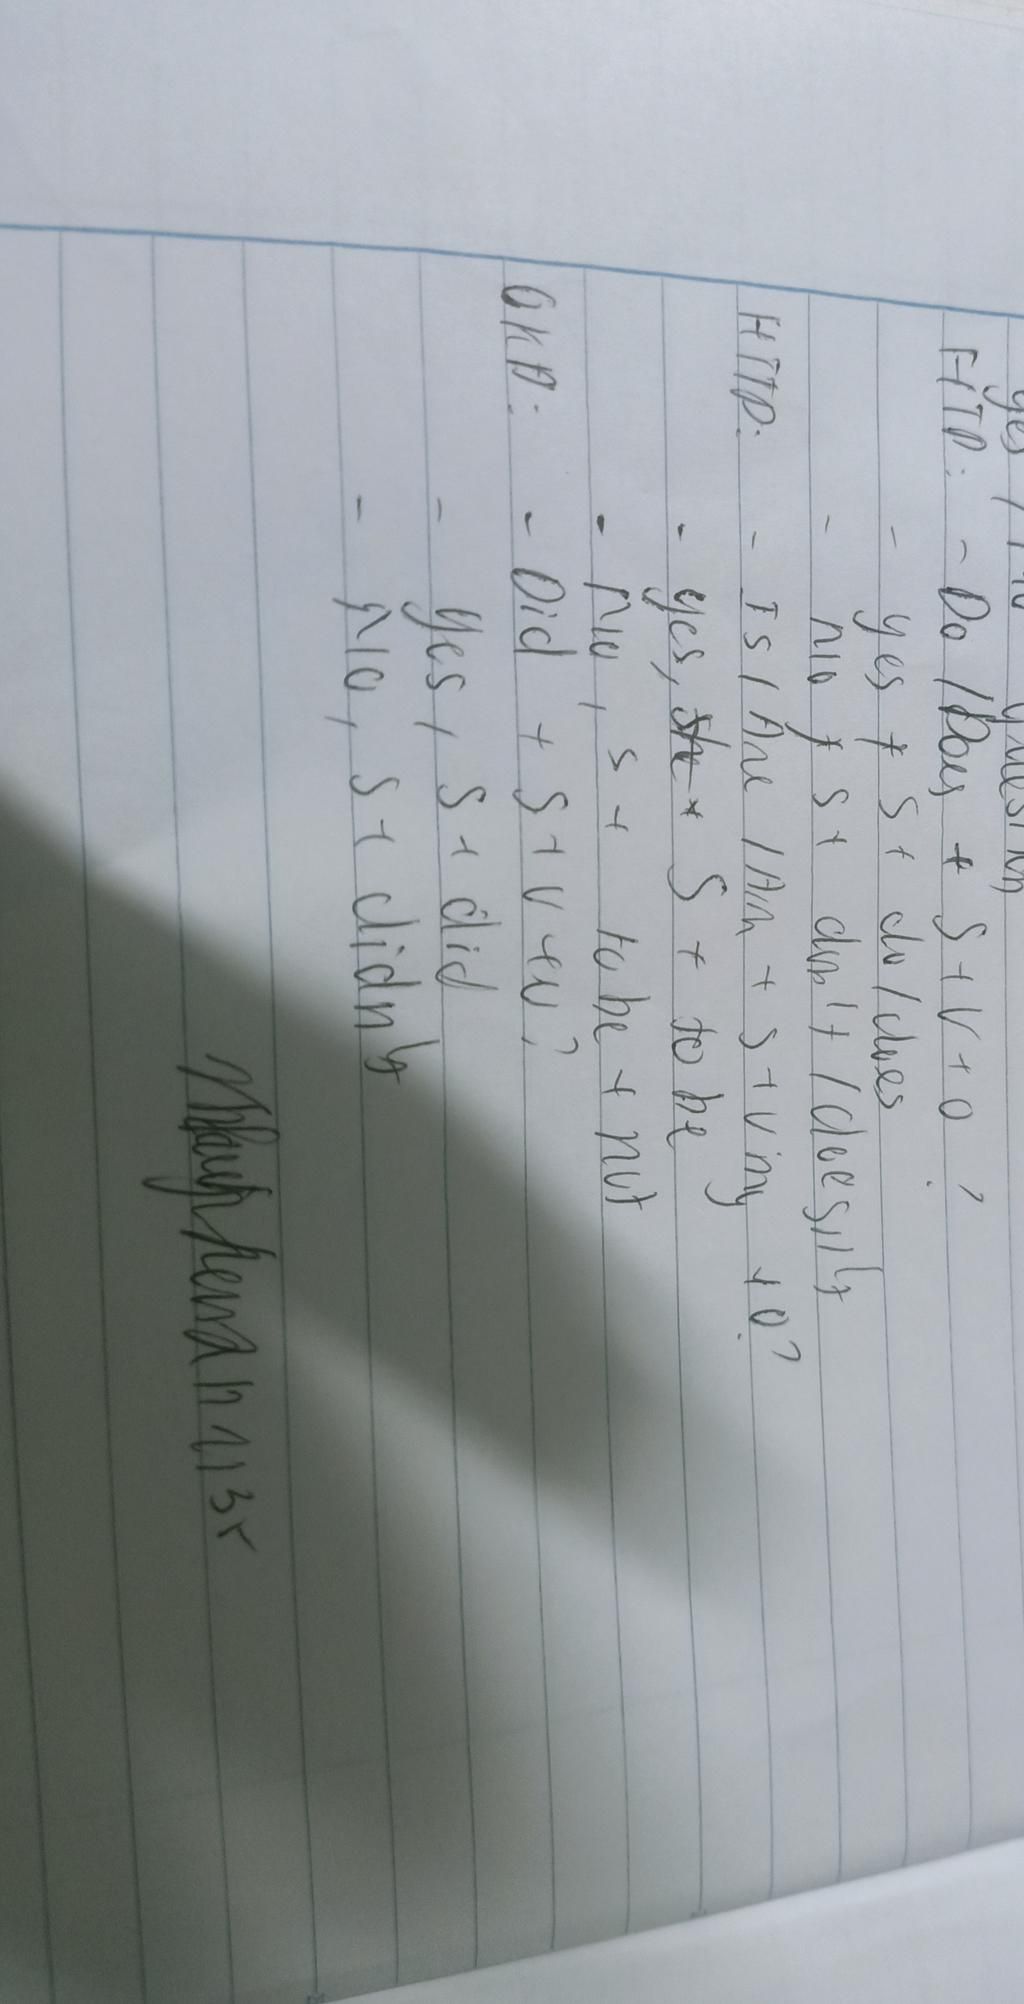 yes / no question
HTĐ: - Do / Does + S + V + O ?
- yes + S + do / does
- no + S + don't / doesn't
HTTD: - Is / Are / Am + S + Ving + O?
- yes, S + to be
- no, S + to be + not
QKĐ: - Did + S + V + O?
- yes, S + did
- No, S + didn't